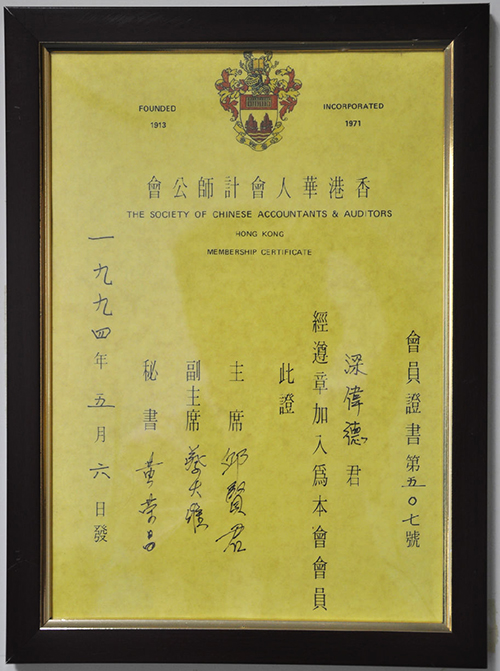 FOUNDED
1913
INCORPORATED
1971
香港華人會計師公會
THE SOCIETY OF CHINESE ACCOUNTANTS & AUDITORS
HONG KONG
MEMBERSHIP CERTIFICATE
會員證書第五〇七號
梁偉德君
經遵章加入爲本會會員
此證
主席 邱賢君
副主席
秘書 黃榮昌
一九九四年五月六日發